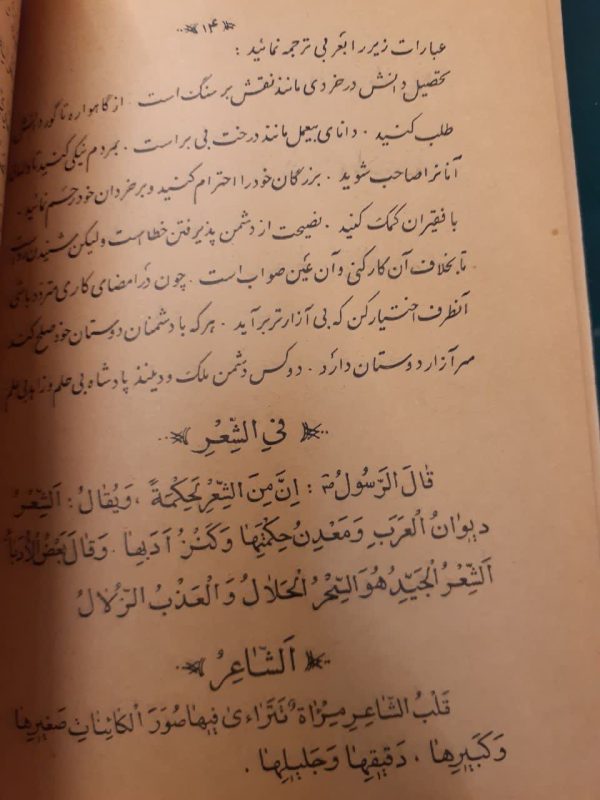 ۱۴
عبارات زیر را بعربی ترجمه نمائید :
تحصیل دانش در خردی مانند نقش بر سنگ است . از گاهواره تا گور دانش
طلب کنید . دانای بیعمل مانند درخت بی بر است . بمردم نیکی کنید تا دلهای
آنانرا صاحب شوید . بزرگان خود را احترام کنید و بر خردان خود رحم نمائید .
با فقیران کمک کنید . نصیحت از دشمن پذیرفتن خطا است ولیکن شنیدن رواست
تا بخلاف آن کار کنی و آن عین صواب است . چون در امضای کاری متردد باشی
آنطرف اختیار کن که بی آزارتر برآید . هر که با دشمنان دوستان خود صلح کند
سر آزار دوستان دارد . دو کس دشمن ملک و دینند پادشاه بی حلم و زاهد بی علم
فِی الشِّعْرِ
قٰالَ الرَّسُولُ ص : اِنَّ مِنَ الشِّعْرِ لَحِکْمَةً ، وَیُقٰالُ : اَلشِّعْرُ
دیوٰانُ الْعَرَبِ وَمَعْدِنُ حِکْمَتِهٰا وَکَنْزُ اَدَبِهٰا . وَقٰالَ بَعْضُ الْاُدَبٰاءِ
اَلشِّعْرُ الْجَیِّدُ هُوَ السِّحْرُ الْحَلٰالُ وَ الْعَذْبُ الزُّلٰالُ
اَلشّٰاعِرُ
قَلْبُ الشّٰاعِرِ مِرْاٰةٌ تَتَرٰاءیٰ فِیهٰا صُوَرَ الْکٰائِنٰاتِ صَغِیرِهٰا
وَکَبِیرِهٰا ، دَقِیقِهٰا وَجَلِیلِهٰا .